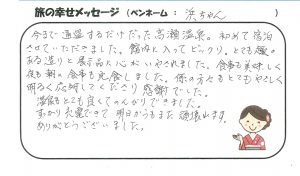 旅の幸せメッセージ(ペンネーム: 浜ちゃん )
今まで通過するだけだった高瀬温泉。初めて宿泊
させていただきました。館内に入ってビックリ。とても趣の
ある造りと展示品に心がいやされました。食事も美味しく
夜も朝の食事も完食しました。係の方もとてもやさしく
明るく応対してくださり感謝でした。
温泉もとても良くてのんびりできました。
すっかり充電できて明日からもまた頑張れます。
ありがとうございました。